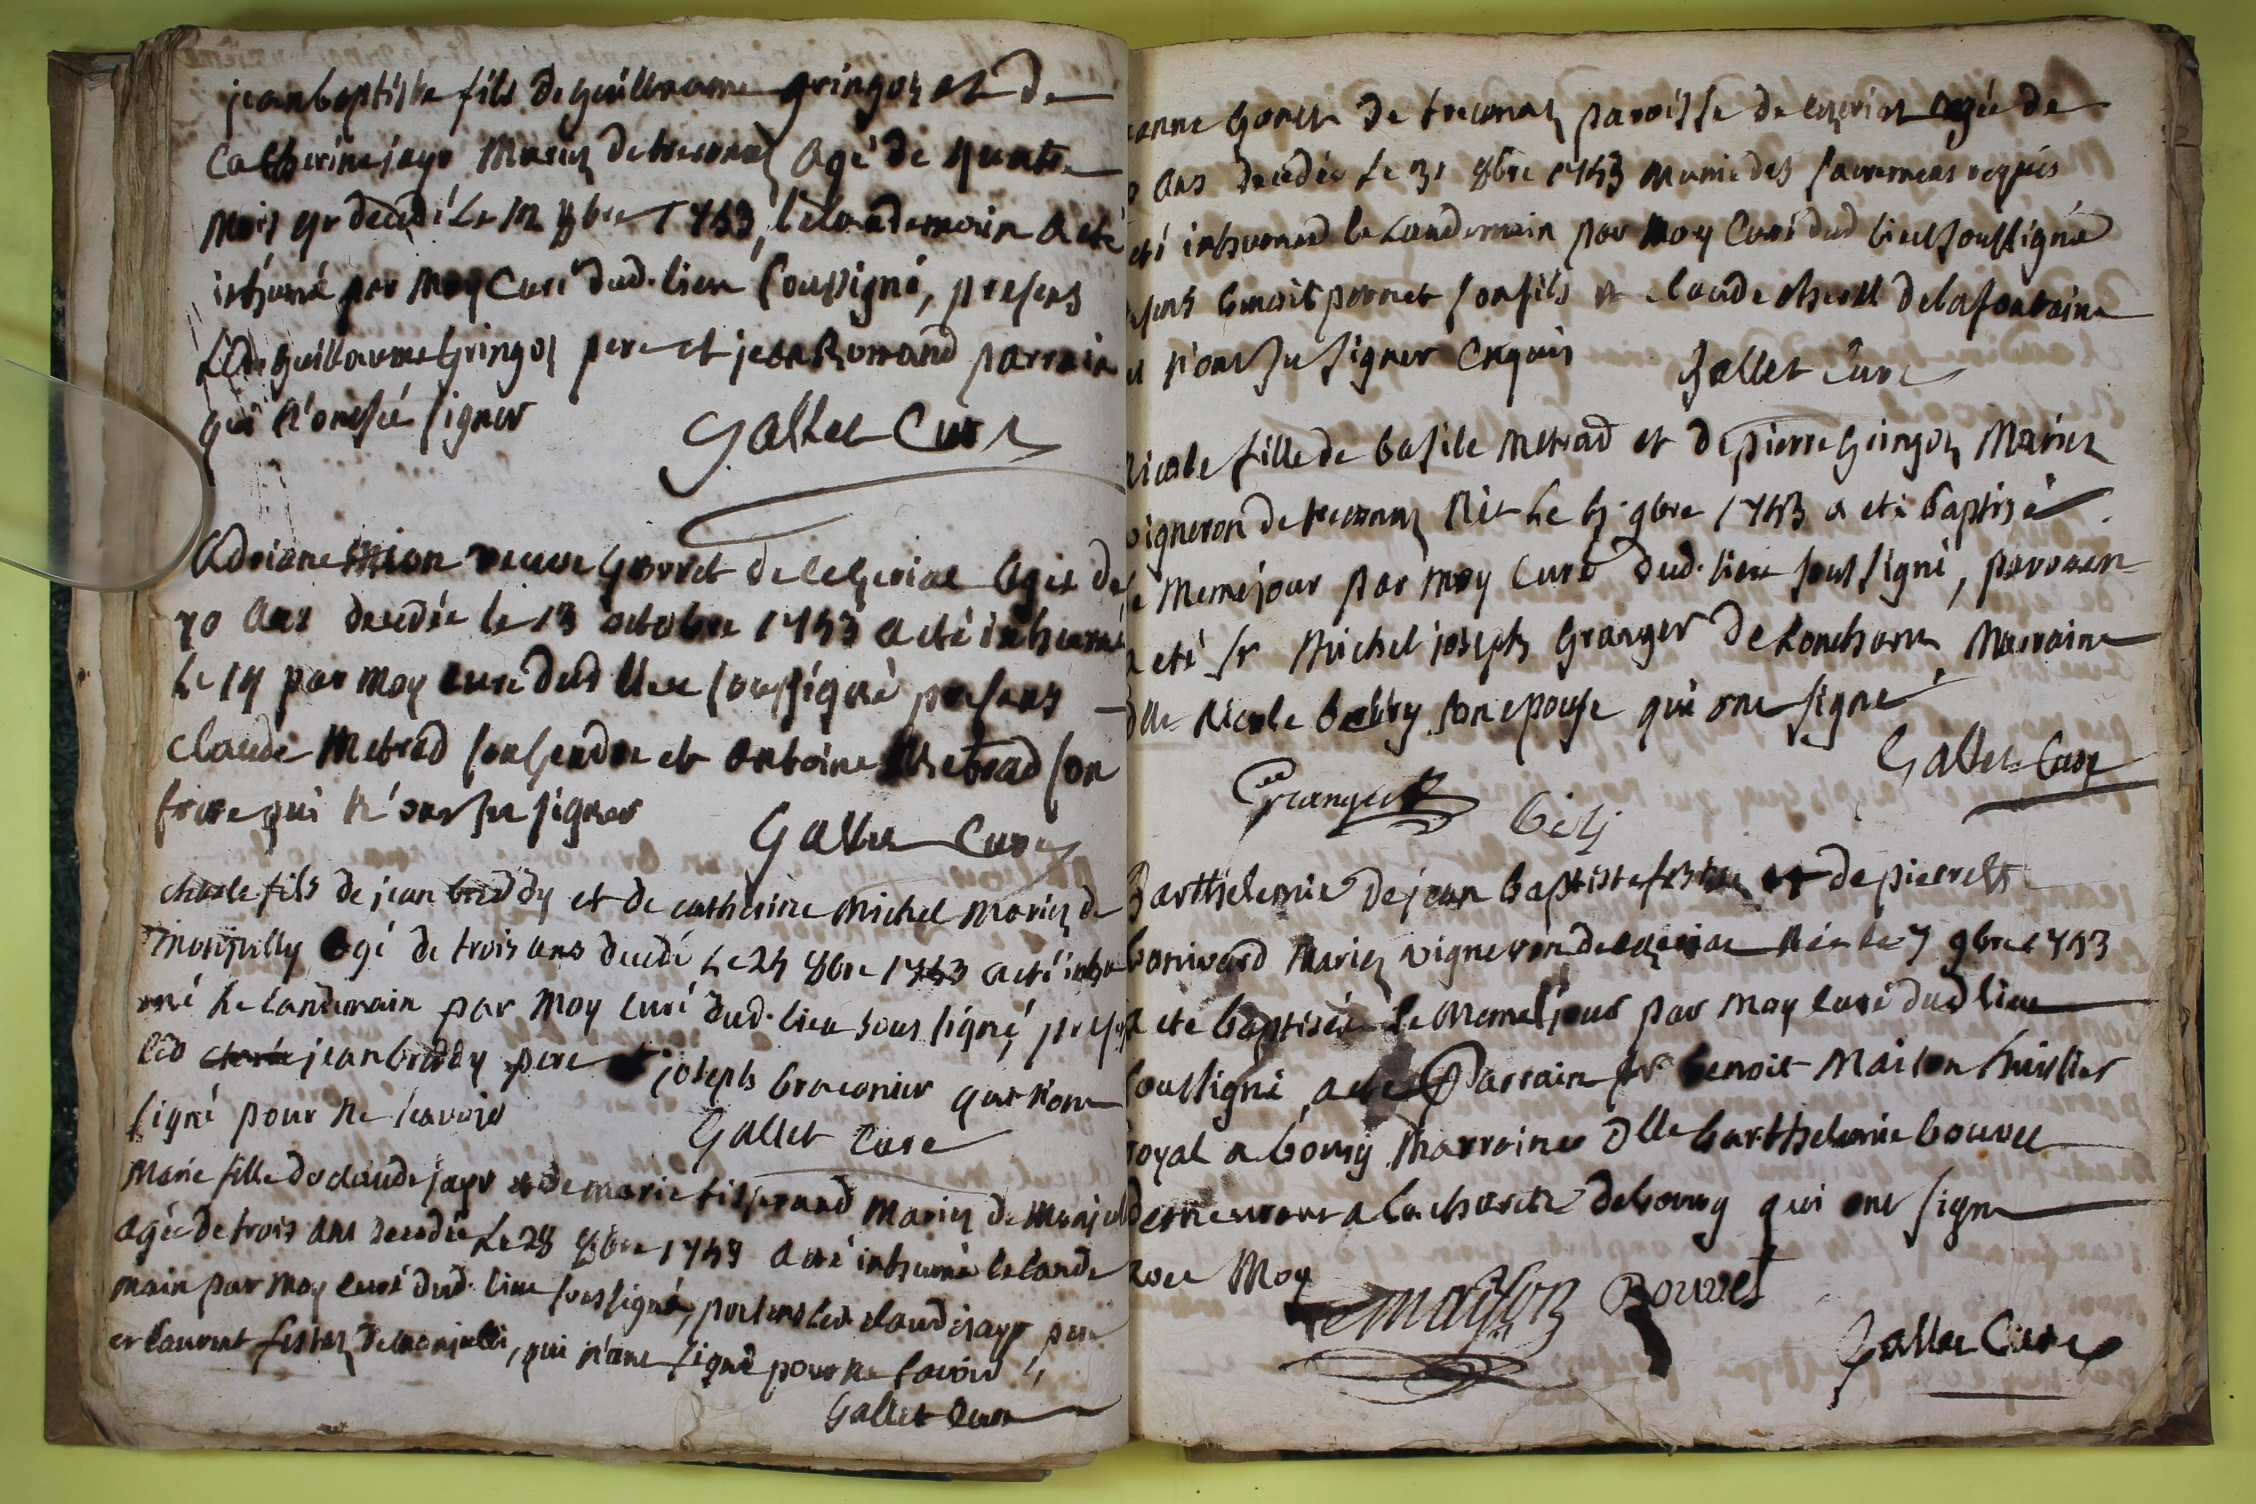 jeanbaptiste fils de guillaume gringoz et de
Catherine jayr Mariez de tresonaz agé de quatre
Mois decedé le 12 8bre 1743, le landemain a été
inhumé par moy Curé dud. lieu soussigné, presens
led guillaume gringoz pere et jean Romand parrain
qui n'ont sçu signer Gallet Curé
Adriane veuve de ceyzeriat agée de
70 ans decedée le 13 octobre 1743 a été inhumé
le 14 par moy curé dud lieu soussigné presens
claude Metrad son gendre et antoine Metrad son
frere qui n'ont su signer Gallet Curé
charle fils de jean breddy et de catherine Michel Mariez de
Monjully agé de trois ans decedé le 24 8bre 1743 a été inhu
mé le landemain par moy curé dud. lieu soussigné, presens
led jean breddy pere et joseph braconier qui n'ont
signé pour ne scavoir Gallet Curé
Marie fille de claude jayr et de marie tisserand Mariez de Monjul
agée de trois ans decedée le 28 8bre 1743 a été inhumé le lande
main par moy curé dud. lieu soussigné, presens led claude jayr pere
et laurent de monjulli, qui n'ont signé pour ne savoir
Gallet Curé
anne de tresonaz paroisse de ceyzeriat agée de
ans decedée le 31 8bre 1743 munie des sacremens requis
eté inhumed le landemain par moy Curé dud lieu soussigné
benoit pernet son fils et claude delafontaine
n'ont su signer enquis Gallet Curé
Nicole fille de basile Metrad et de pierre gringoz Mariez
vigneron de tresonaz née le 9bre 1743 a eté baptisé
le meme jour par moy Curé dud. lieu soussigné, parrain
a eté sr Michel joseph Granger de Marraine
dlle Nicole son epouse qui ont signé
Gallet Curé
Granger
Barthelemie de jean baptiste et de pierrette
bonivard Mariez vigneron de ceyzeriat née le 7 9bre 1743
a eté baptisée le meme jour par moy curé dud lieu
soussigné, a eté Parrain sr benoit Maison huissier
royal a bourg Marraine dlle barthelemie bouvet
demeurant a la charité de bourg qui ont signé
avec Moy
Maison Bouvet
Gallet Curé